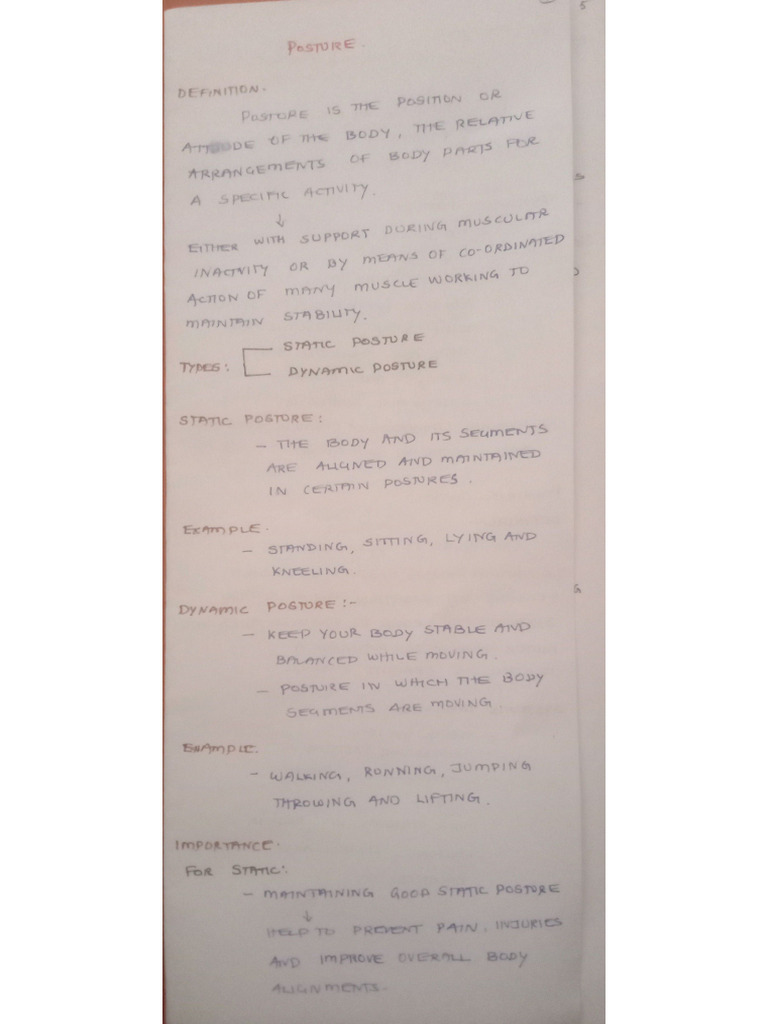 POSTURE.
DEFINITION.
POSTURE IS THE POSITION OR
ATTITUDE OF THE BODY, THE RELATIVE
ARRANGEMENTS OF BODY PARTS FOR
A SPECIFIC ACTIVITY.
↓
EITHER WITH SUPPORT DURING MUSCULAR
INACTIVITY OR BY MEANS OF CO-ORDINATED
ACTION OF MANY MUSCLE WORKING TO
MAINTAIN STABILITY.
STATIC POSTURE
TYPES:
DYNAMIC POSTURE
STATIC POSTURE:
- THE BODY AND ITS SEGMENTS
ARE ALIGNED AND MAINTAINED
IN CERTAIN POSTURES.
EXAMPLE.
- STANDING, SITTING, LYING AND
KNEELING.
DYNAMIC POSTURE:-
- KEEP YOUR BODY STABLE AND
BALANCED WHILE MOVING.
- POSTURE IN WHICH THE BODY
SEGMENTS ARE MOVING.
EXAMPLE.
- WALKING, RUNNING, JUMPING
THROWING AND LIFTING.
IMPORTANCE.
FOR STATIC:
- MAINTAINING GOOD STATIC POSTURE
↓
HELP TO PREVENT PAIN, INJURIES
AND IMPROVE OVERALL BODY
ALIGNMENTS.